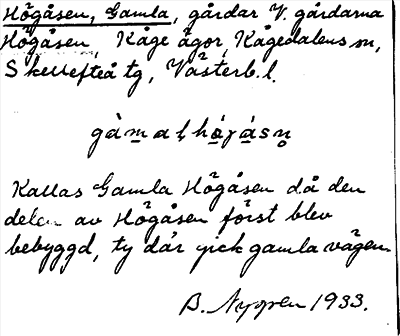 Högåsen, Gamla, gårdar V. gårdarna
Högåsen, Kåge ägor, Kågedalens sn,
Skellefteå tg, Västerb.l.
Kallas Gamla Högåsen då den
delen av Högåsen först blev
bebyggd, ty där gick gamla vägen
B. Nygren 1933.